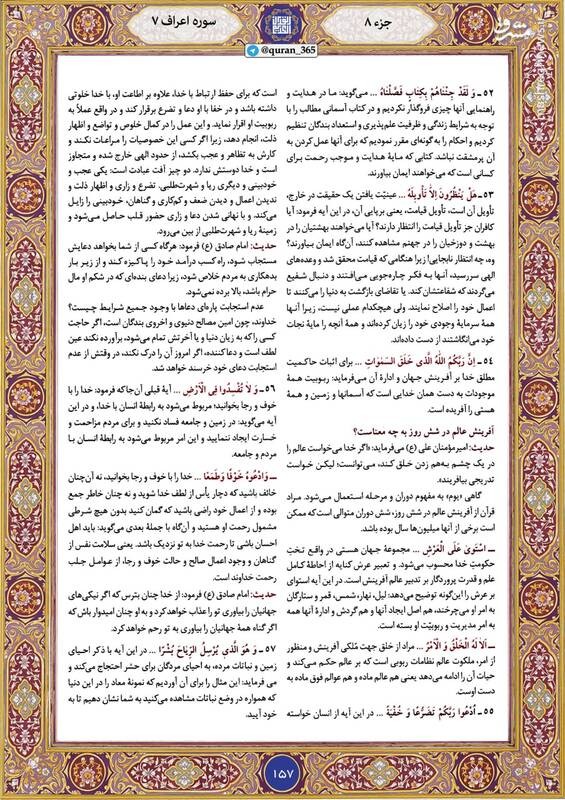 جزء ۸
سوره اعراف ۷
@quran_365
مشرق
۵۲ـ وَ لَقَدْ جِئْنَاهُمْ بِکِتَابٍ فَصَّلْنَاهُ ... می‌گوید: ما در هدایت و
راهنمایی آنها چیزی فروگذار نکردیم و در کتاب آسمانی مطالب را با
توجه به شرایط زندگی و ظرفیت علم‌پذیری و استعداد بندگان تنظیم
کردیم و احکام را به گونه‌ای مقرر نمودیم که برای آنها عمل کردن به
آن پرمشقت نباشد. کتابی که مایهٔ هدایت و موجب رحمت برای
کسانی است که می‌خواهند ایمان بیاورند.
۵۳ـ هَلْ یَنْظُرُونَ اِلاَّ تَأْوِیلَهُ ... عینیّت یافتن یک حقیقت در خارج،
تأویل آن است، تأویل قیامت، یعنی برپایی آن، در این آیه فرمود: آیا
کافران جز تأویل قیامت را انتظار دارند؟ آیا می‌خواهند بهشتیان را در
بهشت و دوزخیان را در جهنم مشاهده کنند، آن‌گاه ایمان بیاورند؟
وه، چه انتظار نابجایی! زیرا هنگامی که قیامت محقق شد و وعده‌های
الهی سررسید، آنها به فکر چاره‌جویی می‌افتند و دنبال شفیع
می‌گردند که شفاعتشان کند. یا تقاضای بازگشت به دنیا را می‌کنند تا
اعمال خود را اصلاح نمایند. ولی هیچکدام عملی نیست، زیرا آنها
همهٔ سرمایهٔ وجودی خود را زیان کرده‌اند و همهٔ آنچه را مایهٔ نجات
خود می‌انگاشتند از دست داده‌اند.
۵۴ـ اِنَّ رَبَّکُمُ اللهُ الَّذی خَلَقَ السَّمٰوَاتِ ... برای اثبات حاکمیت
مطلق خدا بر آفرینش جهان و ادارهٔ آن می‌فرماید: ربوبیت همهٔ
موجودات به دست همان خدایی است که آسمانها و زمین و همهٔ
هستی را آفریده است.
آفرینش عالم در شش روز به چه معناست؟
حدیث: امیرمؤمنان علی (ع) می‌فرماید: «اگر خدا می‌خواست عالم را
در یک چشم به‌هم زدن خلق کند، می‌توانست؛ لیکن خواست
تدریجی بیافریند».
گاهی «یوم» به مفهوم دوران و مرحله استعمال می‌شود. مراد
قرآن از آفرینش عالم در شش روز، شش دوران متوالی است که ممکن
است برخی از آنها میلیون‌ها سال بوده باشد.
ـــ اسْتَوٰی عَلَی الْعَرْشِ ... مجموعهٔ جهان هستی در واقع تختِ
حکومتِ خدا محسوب می‌شود. و تعبیر عرش کنایه از احاطهٔ کامل
علم و قدرت پروردگار بر تدبیر عالم آفرینش است. در این آیه استوای
بر عرش را این‌گونه توضیح می‌دهد: لیل، نهار، شمس، قمر و ستارگان
به امر او می‌چرخند، هم اصل ایجاد آنها و هم گردش و ادارهٔ آنها همه
به امر مدیریت و ربوبیّت او بسته است.
ـــ اَلاَ لَهُ الْخَلْقُ وَ الْاَمْرُ ... مراد از خلق جهت مُلکی آفرینش و منظور
از امر، ملکوت عالم نظامات ربوبی است که بر عالم حکم می‌کند و
حیات آن را ادامه می‌دهد. یعنی هم عالم ماده و هم عوالم فوق ماده به
دست اوست.
۵۵ـ اُدْعُوا رَبَّکُمْ تَضَرُّعًا وَ خُفْیَةً ... در این آیه از انسان خواسته
است که برای حفظ ارتباط با خدا، علاوه بر اطاعت او، با خدا خلوتی
داشته باشد و در خفا با او دعا و تضرع برقرار کند و در واقع عملاً به
ربوبیت او اقرار نماید. و این عمل را در کمال خلوص و تواضع و اظهار
ذلت، انجام دهد، زیرا اگر کسی این خصوصیات را مراعات نکند و
کارش به تظاهر و عجب بکشد، از حدود الهی خارج شده و متجاوز
است و خدا دوستش ندارد. دو چیز آفت عبادت است: یکی عجب و
خودبینی و دیگری ریا و شهرت‌طلبی. تضرع و زاری و اظهار ذلت و
ندیدن اعمال و دیدن ضعف و کم‌کاری و گناهان، خودبینی را زایل
می‌کند. و با نهانی شدن دعا و زاری حضور قلب حاصل می‌شود و
زمینهٔ ریا و شهرت‌طلبی از بین می‌رود.
حدیث: امام صادق (ع) فرمود: هرگاه کسی از شما بخواهد دعایش
مستجاب شود، راه کسب درآمد خود را پاکیزه کند و از زیر بار
بدهکاری به مردم خلاص شود، زیرا دعای بنده‌ای که در شکم او مال
حرام باشد، بالا برده نمی‌شود.
عدم استجابت پاره‌ای دعاها با وجود جمیع شرایط چیست؟
خداوند، چون امین مصالح دنیوی و اخروی بندگان است، اگر حاجت
کسی را که به زیان دنیا و یا آخرتش تمام می‌شود، برآورده نکند عین
لطف است و دعاکننده، اگر امروز آن را درک نکند، در وقتش از عدم
استجابت دعای خود خرسند خواهد شد.
۵۶ـ وَ لاَ تُفْسِدُوا فِی الْاَرْضِ ... آیهٔ قبلی آن‌جا که فرمود: خدا را با
خوف و رجا بخوانید؛ مربوط می‌شود به رابطهٔ انسان با خدا، و در این
آیه می‌گوید: در زمین و جامعه فساد نکنید و برای مردم مزاحمت و
خسارت ایجاد ننمایید و این امر مربوط می‌شود به رابطهٔ انسان با
مردم و جامعه.
ـــ وَادْعُوهُ خَوْفًا وَطَمَعًا ... خدا را با خوف و رجا بخوانید، نه آن‌چنان
خائف باشید که دچار یأس از لطف خدا شوید و نه چنان خاطر جمع
بوده و از اعمال خود راضی باشید که گمان کنید بدون هیچ شرطی
مشمول رحمت او هستید و آن‌گاه با جملهٔ بعدی می‌گوید: باید اهل
احسان باشی تا رحمت خدا به تو نزدیک باشد. یعنی سلامت نفس از
گناهان و وجود اعمال صالح و حالت خوف و رجا، از عوامل جلب
رحمت خداوند است.
حدیث: امام صادق (ع) فرمود: از خدا چنان بترس که اگر نیکی‌های
جهانیان را بیاوری تو را عذاب خواهد کرد و به او چنان امیدوار باش که
اگر گناه همهٔ جهانیان را بیاوری به تو رحم خواهد کرد.
۵۷ـ وَ هُوَ الَّذی یُرْسِلُ الرِّیَاحَ بُشْرًا ... در این آیه با ذکر احیای
زمین و نباتات مرده، به احیای مردگان برای حشر احتجاج می‌کند و
می فرماید: این مثال را برای آن آوردیم که نمونهٔ معاد را در این دنیا
که همواره در وضع نباتات مشاهده می‌کنید به شما نشان دهیم تا به
خود آیید.
۱۵۷